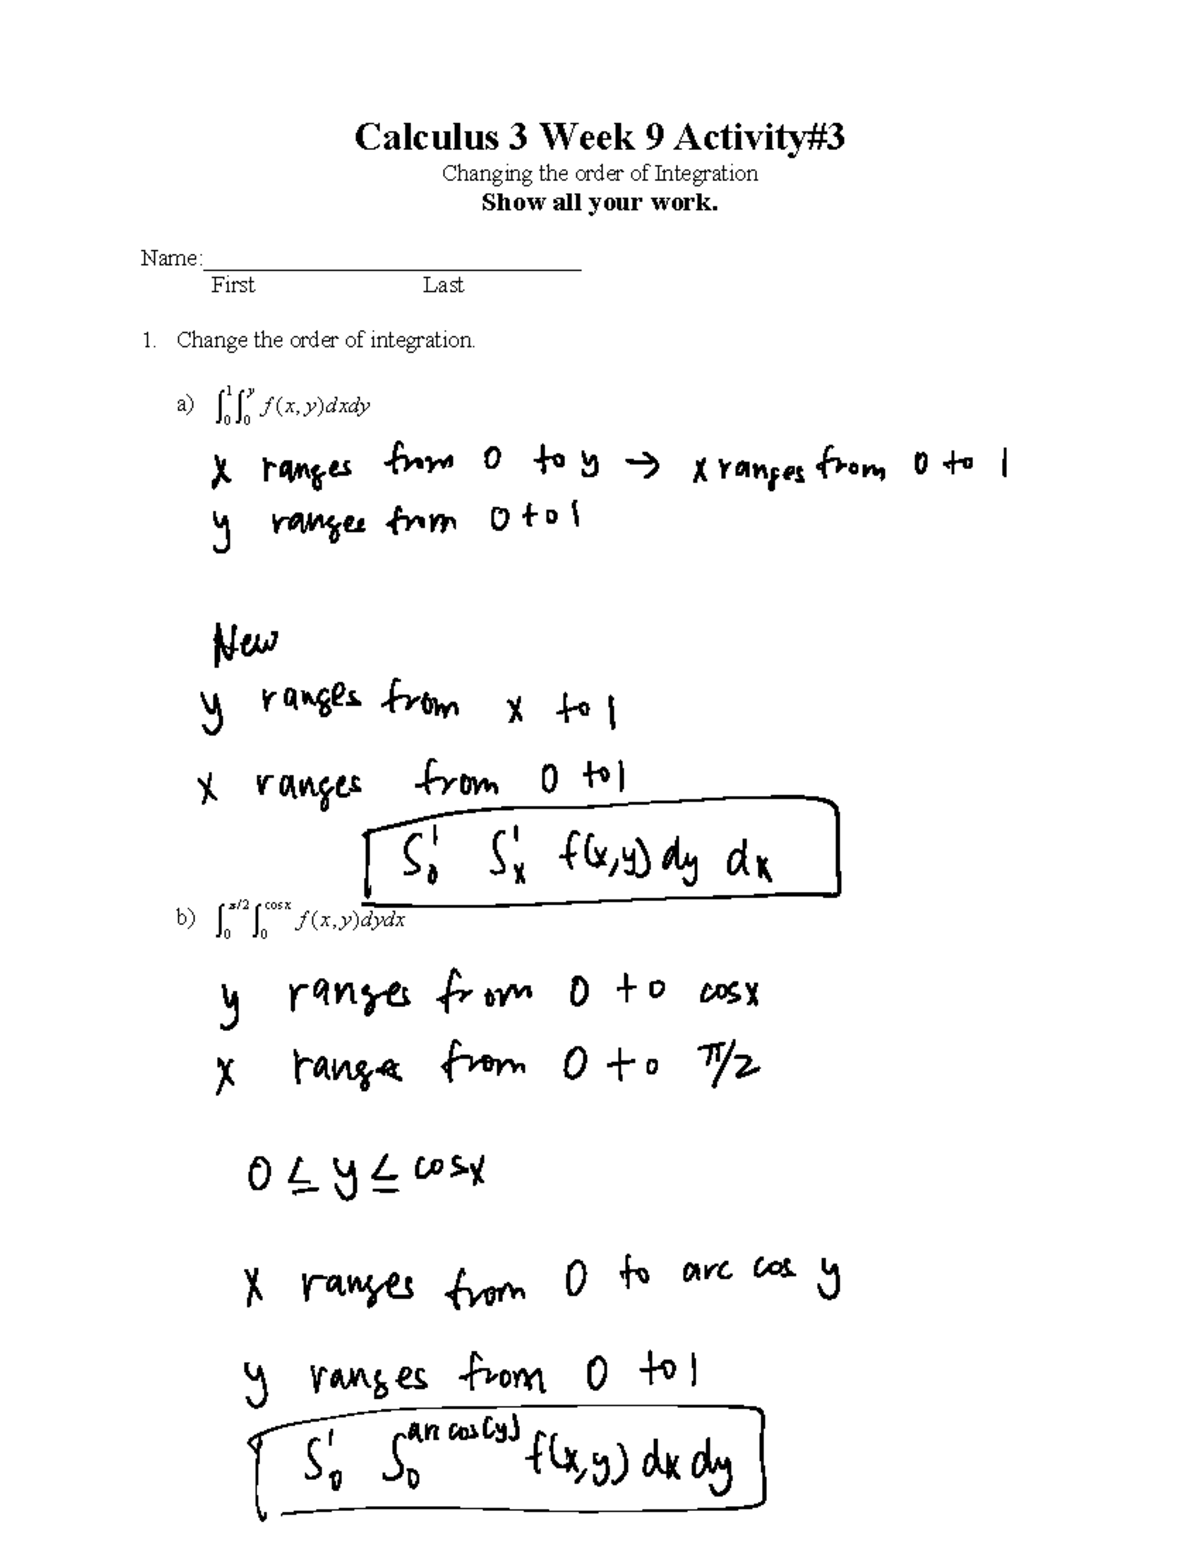 Calculus 3 Week 9 Activity#3
Changing the order of Integration
Show all your work.
Name:
First Last
1. Change the order of integration.
a) ∫₀¹∫₀ʸ f(x,y)dxdy
x ranges from 0 to y → x ranges from 0 to 1
y ranges from 0 to 1
New
y ranges from x to 1
x ranges from 0 to 1
∫₀¹ ∫ₓ¹ f(x,y) dy dx
b) ∫₀^{π/2}∫₀^{cos x} f(x,y)dydx
y ranges from 0 to cosx
x range from 0 to π/2
0 ≤ y ≤ cosx
x ranges from 0 to arc cos y
y ranges from 0 to 1
∫₀¹ ∫₀^{arc cos(y)} f(x,y) dx dy